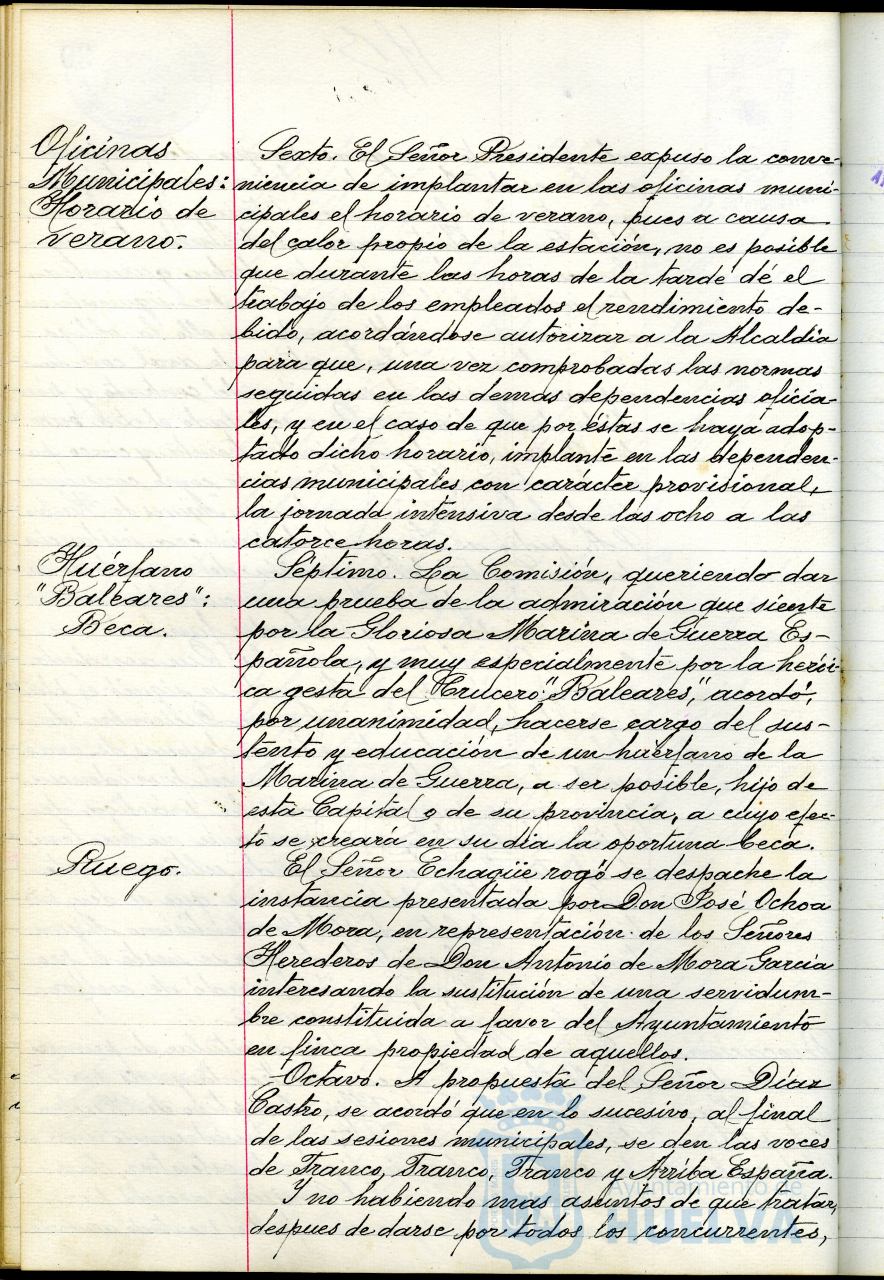 Oficinas
Municipales:
Horario de
verano.
Sexto. El Señor Presidente expuso la conve-
niencia de implantar en las oficinas muni-
cipales el horario de verano, pues a causa
del calor propio de la estación, no es posible
que durante las horas de la tarde dé el
trabajo de los empleados el rendimiento de-
bido, acordándose autorizar a la Alcaldía
para que, una vez comprobadas las normas
seguidas en las demas dependencias oficia-
les, y en el caso de que por éstas se haya adop-
tado dicho horario, implante en las dependen-
cias municipales con carácter provisional,
la jornada intensiva desde las ocho a las
catorce horas.
Huérfano
"Baleares":
Beca.
Séptimo. La Comisión, queriendo dar
una prueba de la admiración que siente
por la Gloriosa Marina de Guerra Es-
pañola, y muy especialmente por la herói-
ca gesta del Crucero "Baleares", acordó,
por unanimidad, hacerse cargo del sus-
tento y educación de un huérfano de la
Marina de Guerra, a ser posible, hijo de
esta Capital o de su provincia, a cuyo efec-
to se creará en su dia la oportuna beca.
Ruego.
El Señor Echagüe rogó se despache la
instancia presentada por Don José Ochoa
de Mora, en representación de los Señores
Herederos de Don Antonio de Mora García
interesando la sustitución de una servidum-
bre constituida a favor del Ayuntamiento
en finca propiedad de aquellos.
Octavo. A propuesta del Señor Díaz
Castro, se acordó que en lo sucesivo, al final
de las sesiones municipales, se den las voces
de Franco, Franco, Franco y Arriba España.
Y no habiendo mas asuntos de que tratar,
despues de darse por todos los concurrentes,
Ayuntamiento de
HUELVA